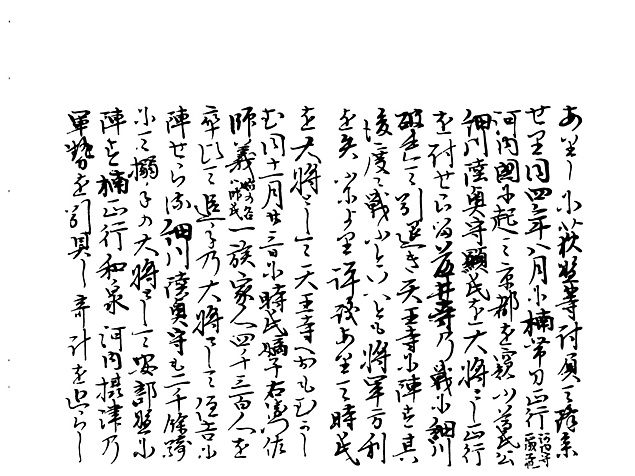 小荻等討負て降参
せり同四年八月小楠帯刀正行
河内国に起て京都を窺ふ尊氏公
細川陸奥守顕氏を大将として正行
を討せらる藤井寺乃戦小細川
破て引退き天王寺小陣す其
後度々戦ふといへとも将軍方利
を失ふより評議ありて時氏
を大将として天王寺へおもむかし
む同十一月廿三日小時氏嫡子右衛門佐
師義始の名師氏一族家人四千三百人を
卒して追手乃大将として住吉小
陣せらる細川陸奥守も二千餘騎
小て搦手の大将として安部野小
陣す楠正行和泉河内摂津乃
軍勢を引具し奇計を廻らし